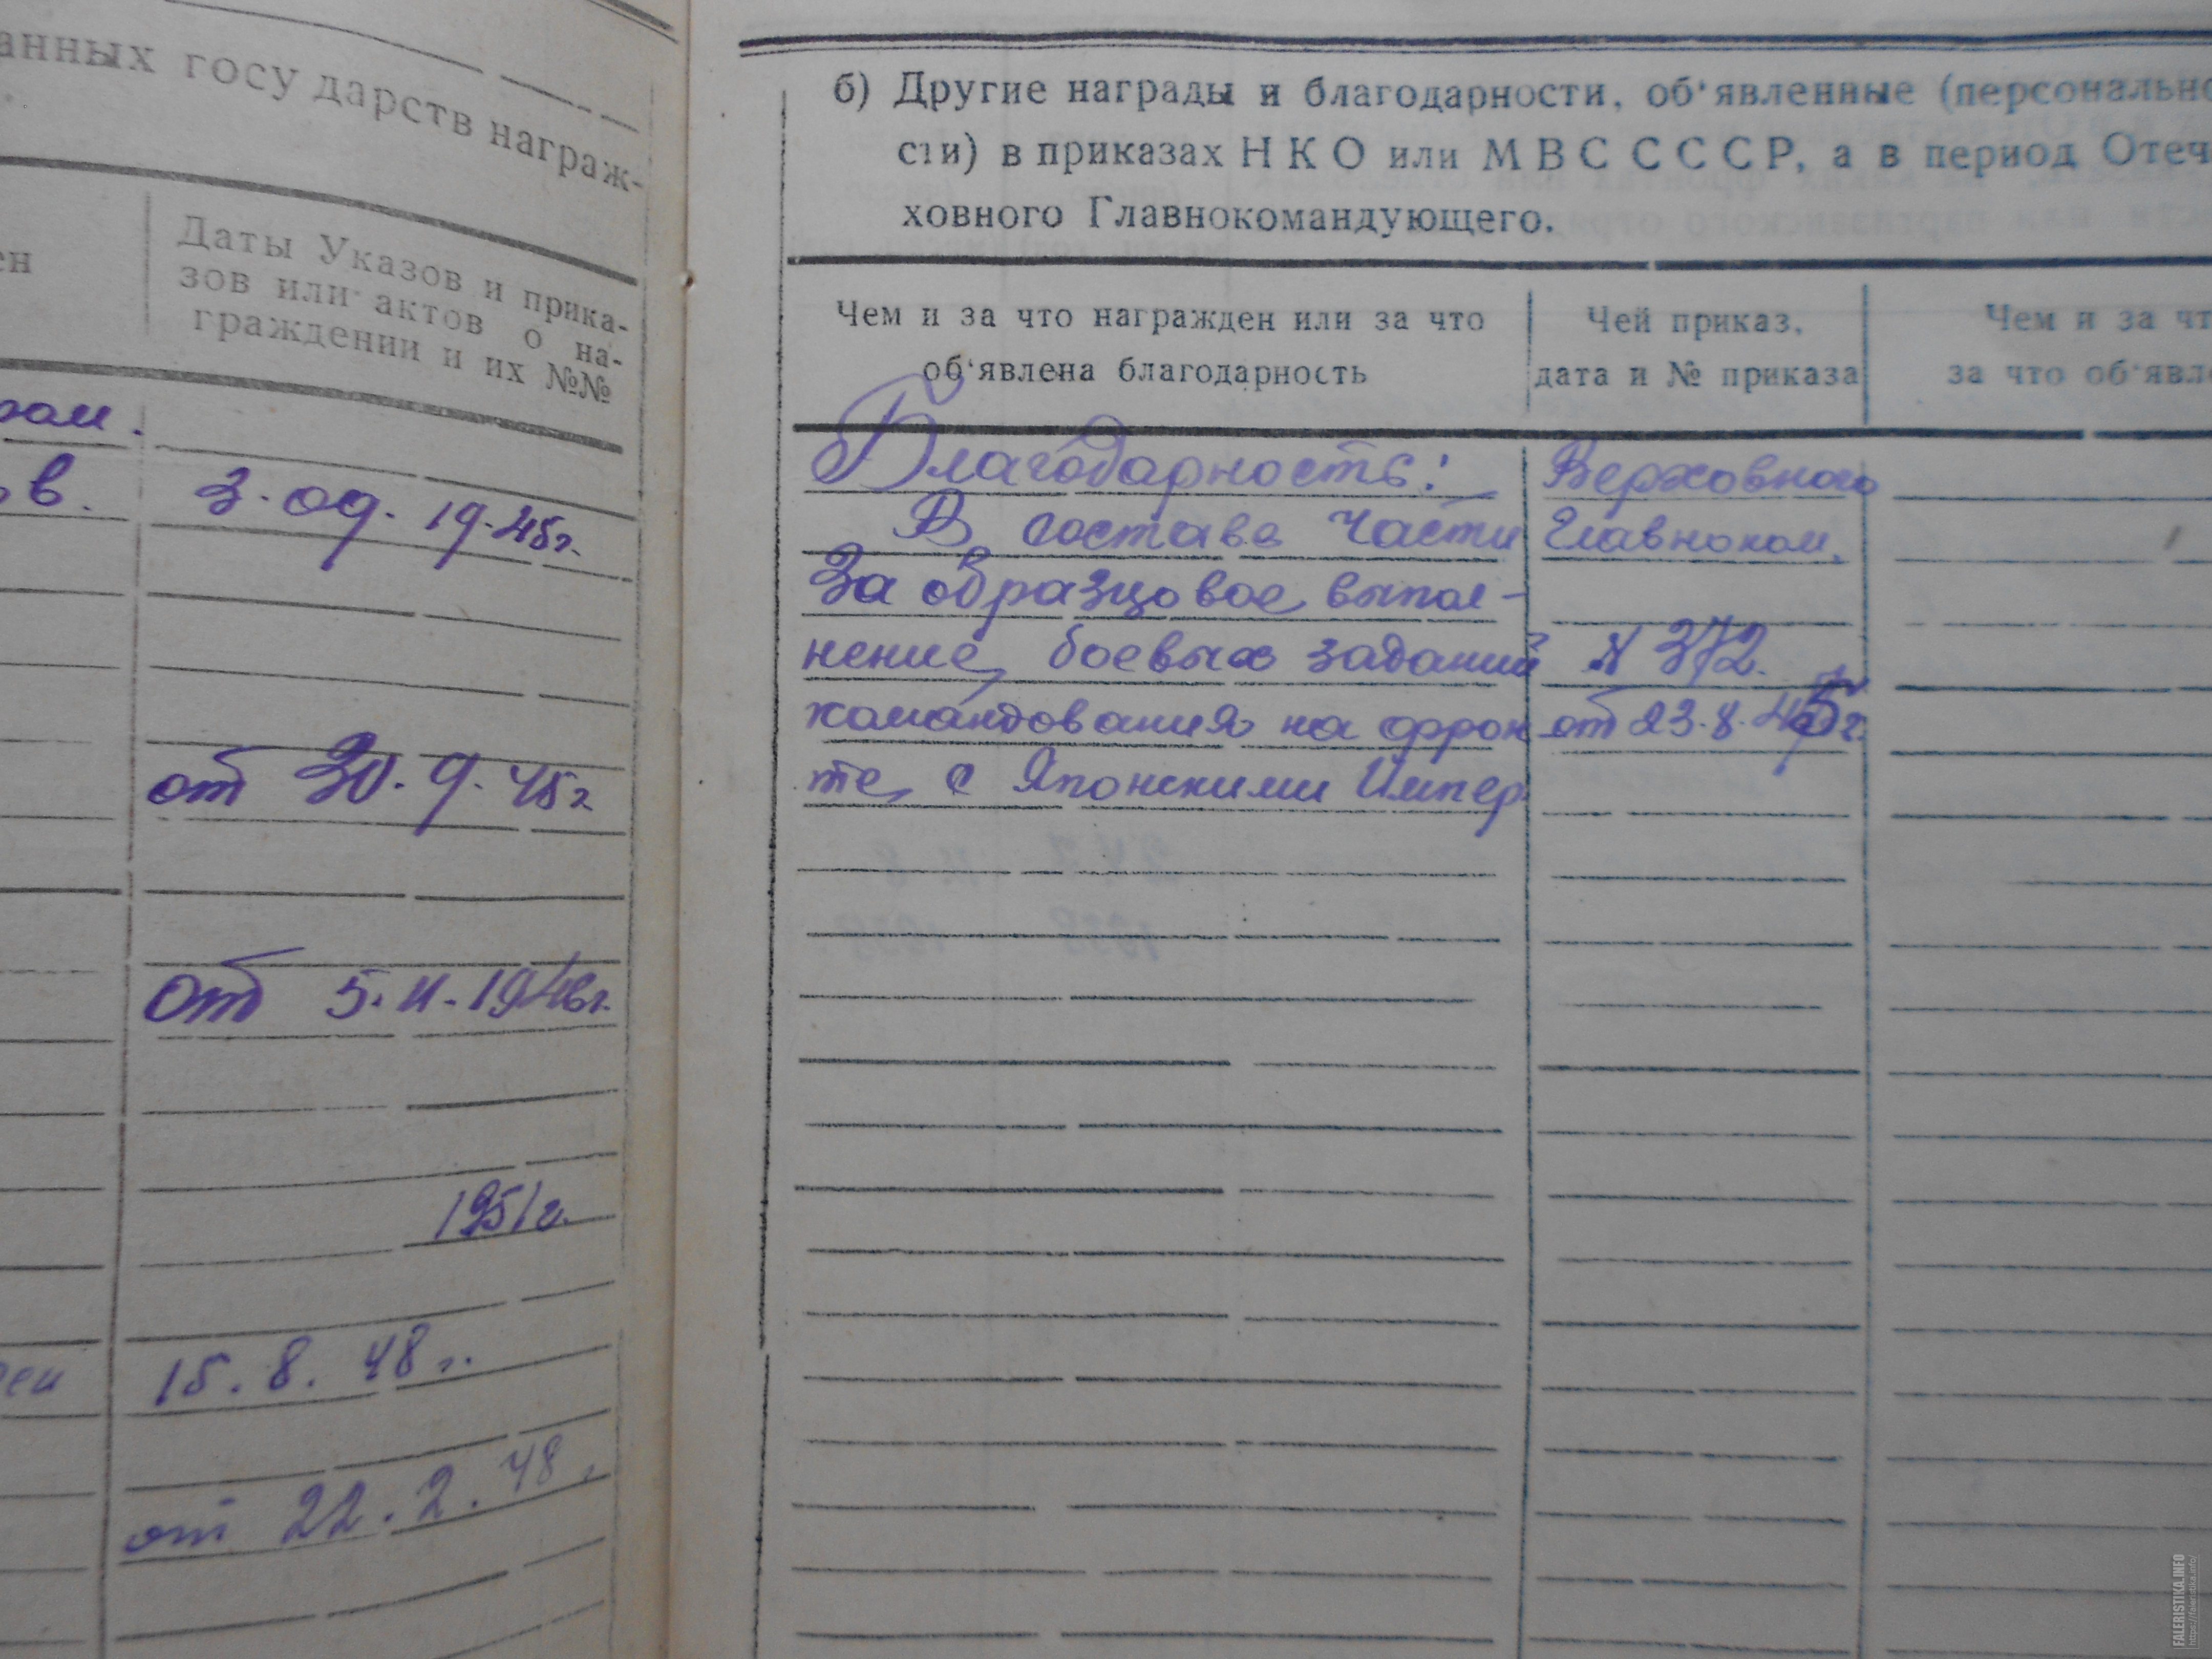 анных государств награж-
ен
Даты Указов и прика-
зов или актов о на-
граждении и их №№
ром.
в. 3. 09. 1945г.
от 30. 9. 45г
от 5. 11. 1946г.
1951г.
15. 8. 48 г.
от 22. 2. 48.
б) Другие награды и благодарности, об‘явленные (персонально
сти) в приказах НКО или МВС СССР, а в период Отеч
ховного Главнокомандующего.
Чем и за что награжден или за что
об‘явлена благодарность
Чей приказ,
дата и № приказа
Чем и за чт
за что об‘явл
Благодарность: Верховного
В составе части Главноком.
За образцовое выпол-
нение боевых заданий N 372.
командования на фрон от 23. 8. 45г.
те с Японскими Импер
FALERISTIKA.INFO
https://faleristika.info/